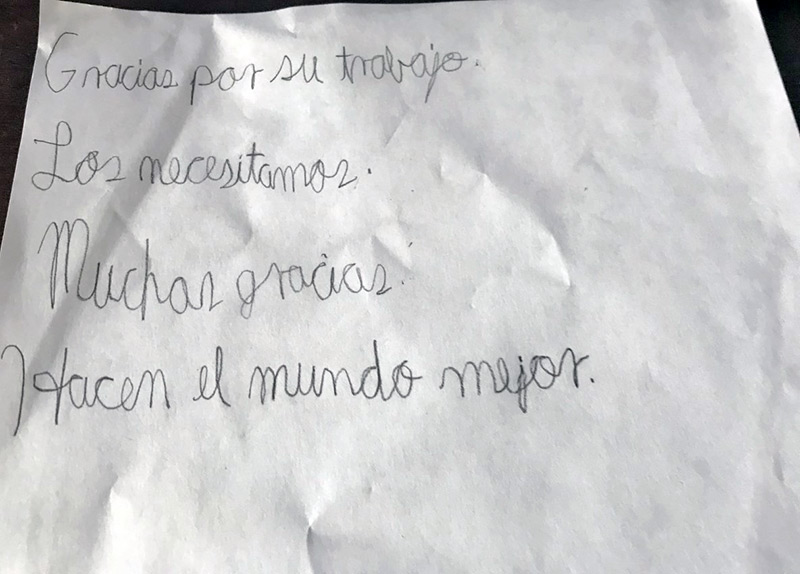 Gracias por su trabajo.
Los necesitamos.
Muchas gracias.
Hacen el mundo mejor.